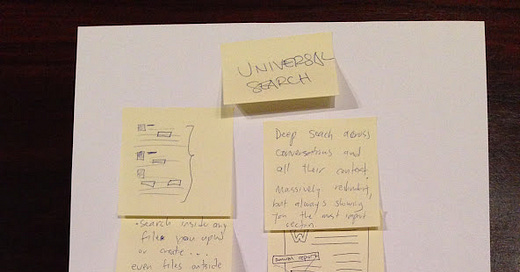 UNIVERSAL
SEARCH
Deep search across
conversations and
all their content.
Massively redundant,
but always showing
you the most
section
• search inside any
files you upload
or create...
even files outside
W